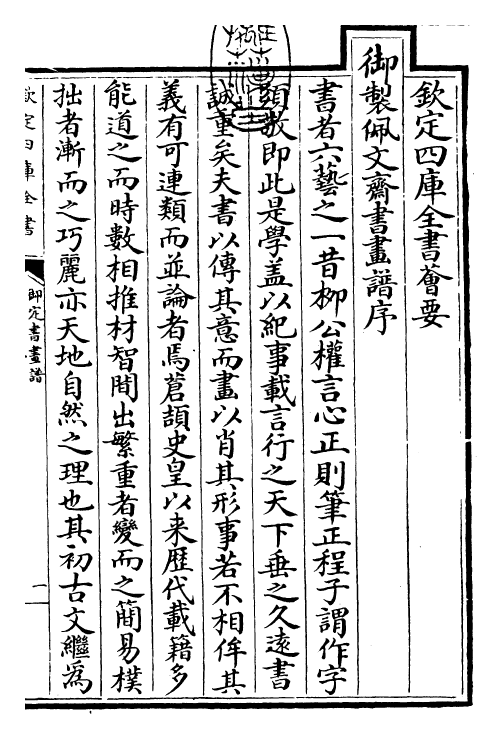 欽定四庫全書薈要
御製佩文齋書畫譜序
書者六藝之一昔柳公權言心正則筆正程子謂作字
須敬即此是學蓋以紀事載言行之天下垂之久遠書
誠重矣夫書以傳其意而畫以肖其形事若不相侔其
義有可連類而並論者焉蒼頡史皇以来歴代載籍多
能道之而時數相推材智閒出繁重者變而之簡易樸
拙者漸而之巧麗亦天地自然之理也其初古文繼為
欽定四庫全書
御定書畫譜
一